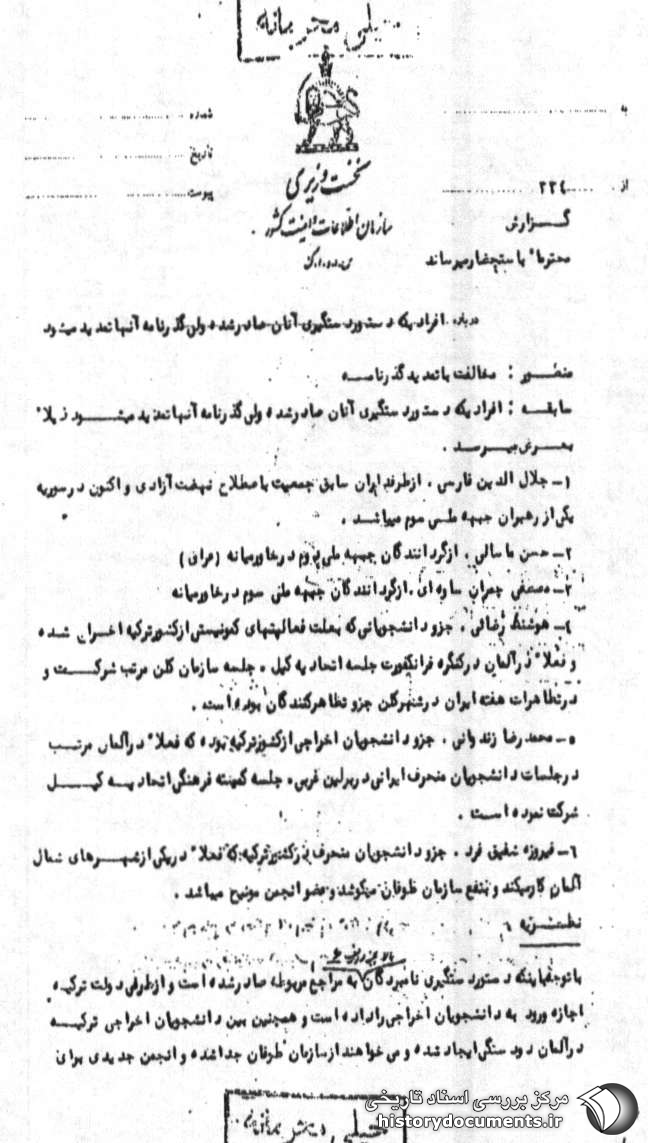 خیلی محرمانه
شماره
به
تاریخ
نخست وزیری
پیوست
از ۳۳۴
سازمان اطلاعات و امنیت کشور
گزارش
محترما" باستحضار میرساند
درباره افرادیکه دستور دستگیری آنان صادر شده ولی گذرنامه آنها تمدید میشود
منظور : مخالفت با تمدید گذرنامه
سابقه : افرادیکه دستور دستگیری آنان صادر شده ولی گذرنامه آنها تمدید میشود ذیلا"
بعرض میرسد .
۱- جلال الدین فارسی . از طرفداران سابق جمعیت باصطلاح نهضت آزادی و اکنون در سوریه
یکی از رهبران جبهه ملی سوم میباشد .
۲- حسن ماسالی . از گردانندگان جبهه ملی دوم در خاورمیانه (عراق)
۳- مصطفی چمران ساوه ای . از گردانندگان جبهه ملی سوم در خاورمیانه
۴- هوشنگ رضائی . جزو دانشجویانی که بعلت فعالیتهای کمونیستی از کشور ترکیه اخراج شده
و فعلا" در آلمان در کنگره فرانکفورت جلسه اتحادیه کیل ، جلسه سازمان کلن مرتب شرکت و
در تظاهرات هفته ایران در شهر کلن جزو تظاهر کنندگان بوده است .
۵- محمد رضا زندوانی . جزو دانشجویان اخراجی از کشور ترکیه بوده که فعلا" در آلمان مرتب
در جلسات دانشجویان منحرف ایرانی در برلین غربی ، جلسه کمیته فرهنگی اتحادیه کیل
شرکت نموده است .
۶- فیروزه شفیق فرد . جزو دانشجویان منحرف در کشور ترکیه که فعلا" در یکی از شهرهای شمال
آلمان کار میکند و بنفع سازمان طوفان میکوشد و عضو انجمن مونیخ میباشد .
نظریه
با توجه باینکه دستور دستگیری نامبردگان بالا به مراجع مربوطه صادر شده است و از طرفی دولت ترکیه
اجازه ورود به دانشجویان اخراجی را داده است و همچنین بین دانشجویان اخراجی ترکیه
در آلمان دودستگی ایجاد شده و می خواهند از سازمان طوفان جدا شده و انجمن جدیدی برای
خیلی محرمانه
مرکز بررسی اسناد تاریخی
historydocuments.ir